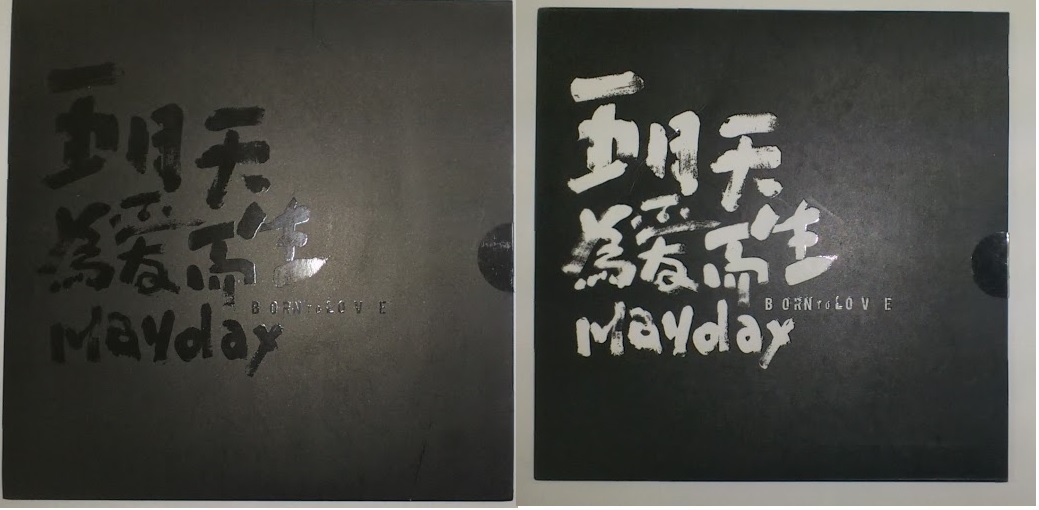 五月天
為愛而生
BORN TO LOVE
Mayday
五月天
為愛而生
BORN TO LOVE
Mayday